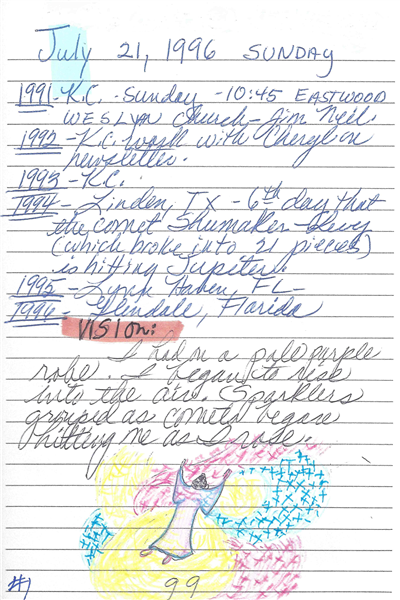 July 21, 1996 SUNDAY
1991- K.C. - Sunday - 10:45 EASTWOOD
WESLYAN Church - Jim Neil.
1992 - K.C. work with Cheryl on
newsletter.
1993 - K.C.
1994 - Linden, TX - 6th day that
the comet Shumaker-Levy
(which broke into 21 pieces)
is hitting Jupiter.
1995 - Lynn Haven, FL -
1996 - Glendale, Florida
VISION:
I had on a pale purple
robe. I began to rise
into the air. Sparklers
grouped as comets began
hitting me as I rose.
#1
99